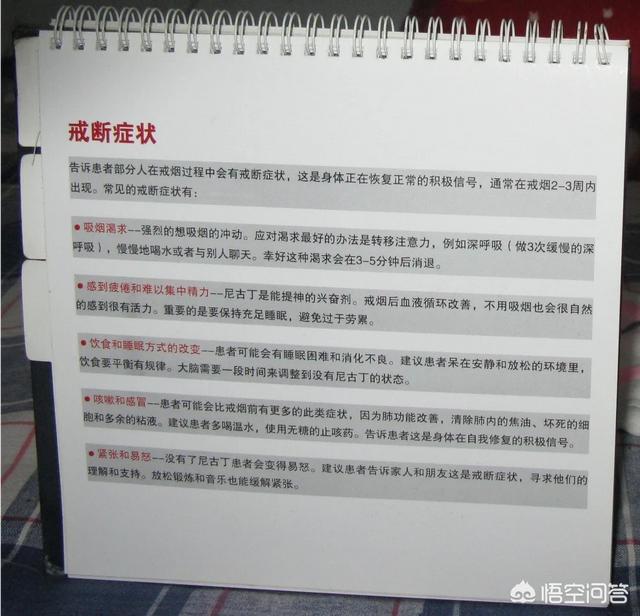 戒断症状
告诉患者部分人在戒烟过程中会有戒断症状，这是身体正在恢复正常的积极信号，通常在戒烟2-3周内
出现。常见的戒断症状有：
●吸烟渴求--强烈的想吸烟的冲动。应对渴求最好的办法是转移注意力，例如深呼吸（做3次缓慢的深
呼吸），慢慢地喝水或者与别人聊天。幸好这种渴求会在3-5分钟后消退。
●感到疲倦和难以集中精力--尼古丁是能提神的兴奋剂。戒烟后血液循环改善，不用吸烟也会很自然
的感到很有活力。重要的是要保持充足睡眠，避免过于劳累。
●饮食和睡眠方式的改变--患者可能会有睡眠困难和消化不良。建议患者呆在安静和放松的环境里，
饮食要平衡有规律。大脑需要一段时间来调整到没有尼古丁的状态。
●咳嗽和感冒--患者可能会比戒烟前有更多的此类症状，因为肺功能改善，清除肺内的焦油、坏死的细
胞和多余的粘液。建议患者多喝温水，使用无糖的止咳药。告诉患者这是身体在自我修复的积极信号。
●紧张和易怒--没有了尼古丁患者会变得易怒。建议患者告诉家人和朋友这是戒断症状，寻求他们的
理解和支持。放松锻炼和音乐也能缓解紧张。
悟空问答